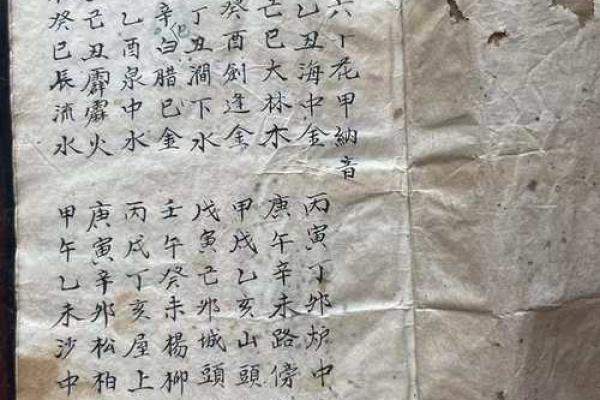 六丁花甲納音
乙丑海中金
己巳大林木
癸酉劍逢金
丁丑澗下水
辛白腊巳金
乙酉泉中水
己丑霹靂火
癸巳長流水
丙寅丁卯炉中
庚午辛未路傍
甲戌乙亥山頭
戊寅己卯城頭
壬午癸未楊柳
丙戌丁亥屋上
庚寅辛卯松柏
甲午乙未沙中